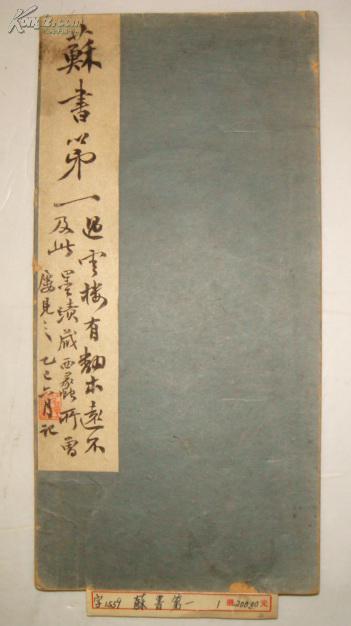 蘇書第一
過雲樓有翻本遠不
及此墨蹟藏西蠡所曾
屢見之乙巳六月記
字1559 蘇書第一 1 200.00元